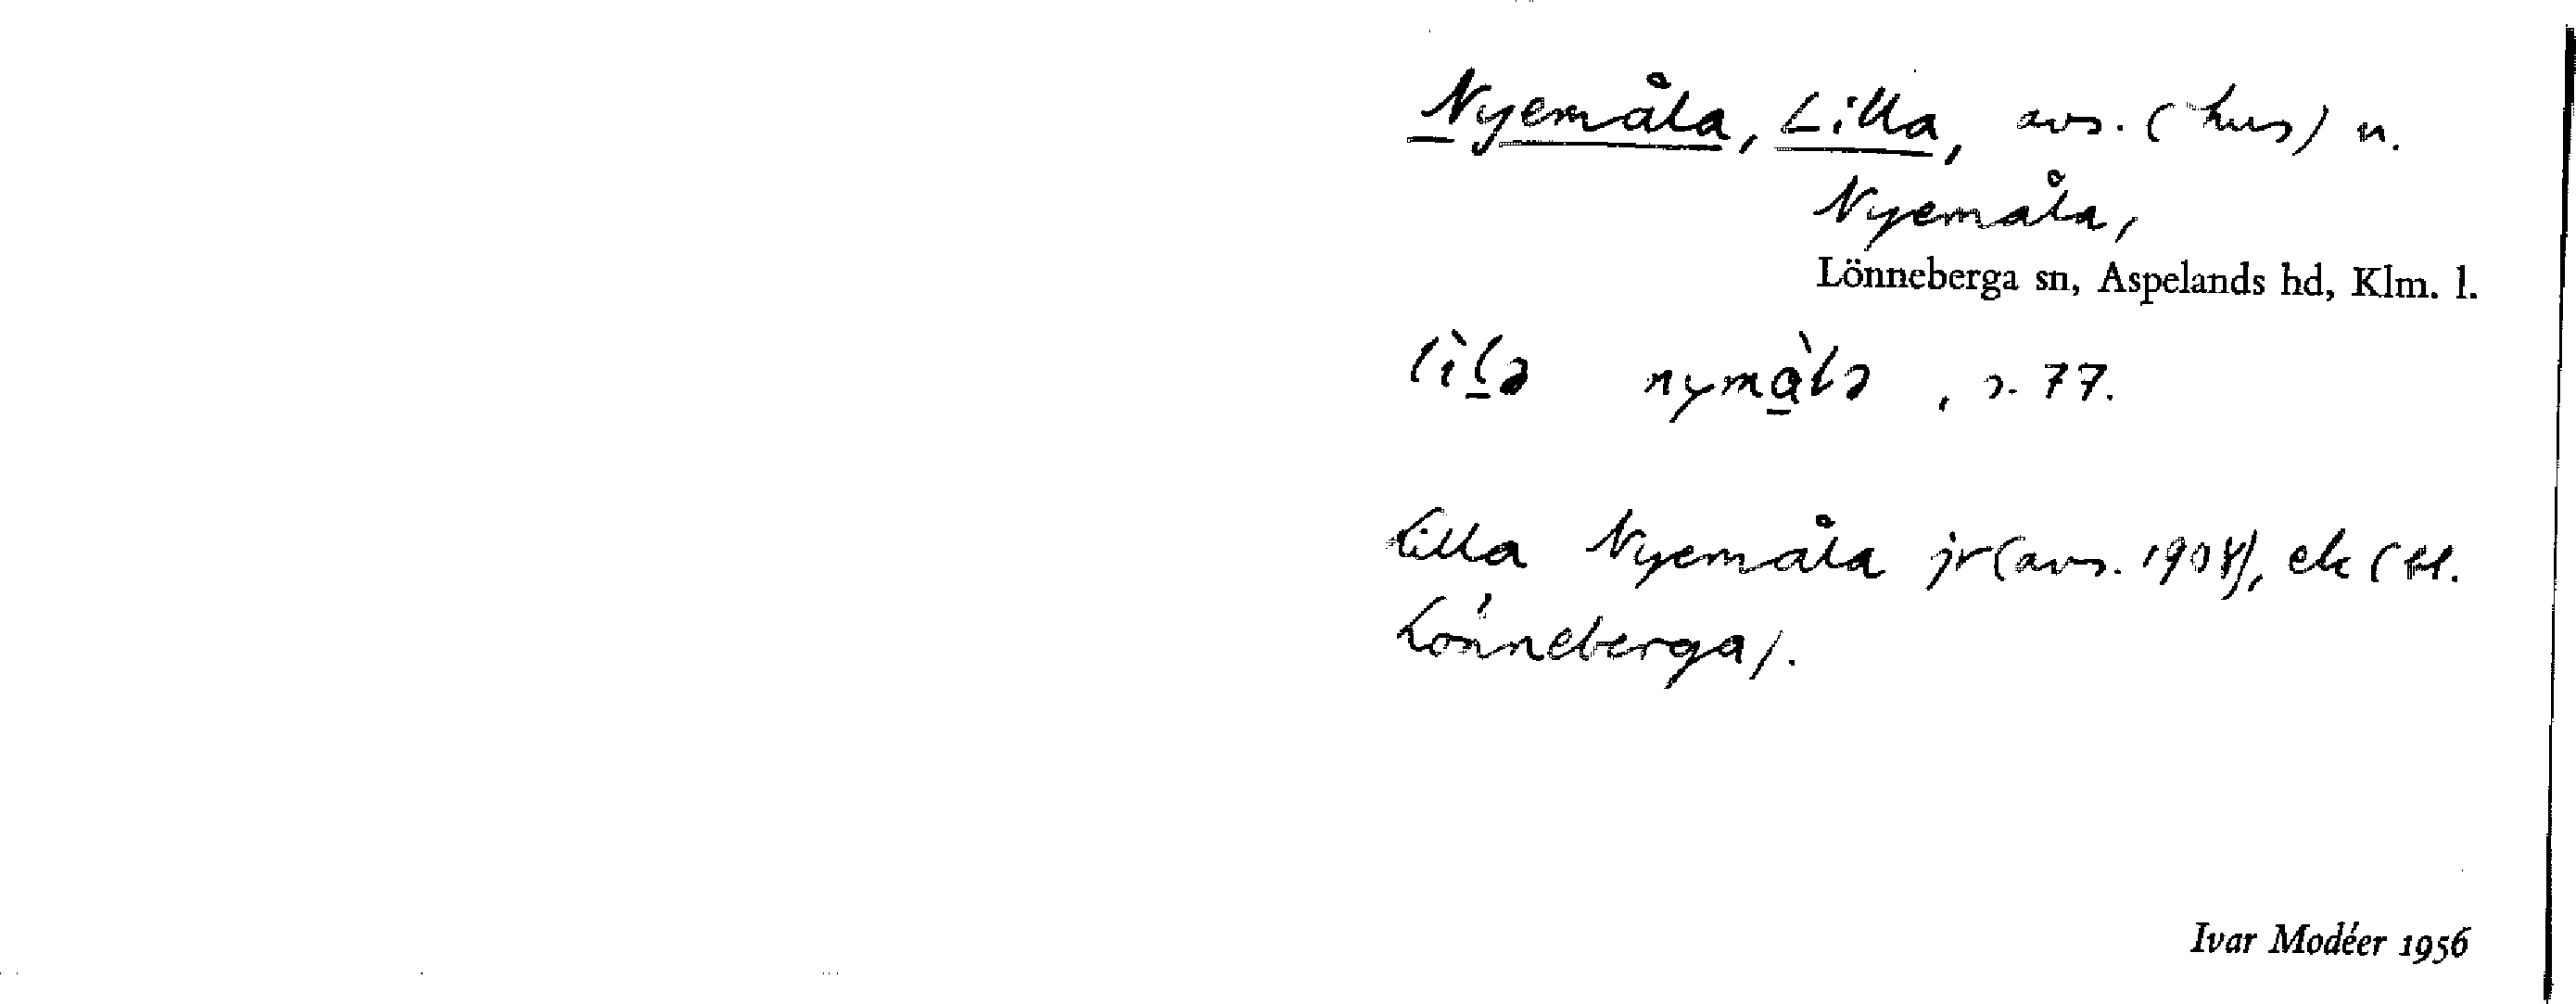 Nyemåla, Lilla, avs. (hus) u.
Nyemåla,
Lönneberga sn, Aspelands hd, Klm. l.
lìlə nymàlə, s. 77.
Lilla Nyemåla jr (avs. 1908), ek (bl.
Lönneberga).
Ivar Modéer 1956